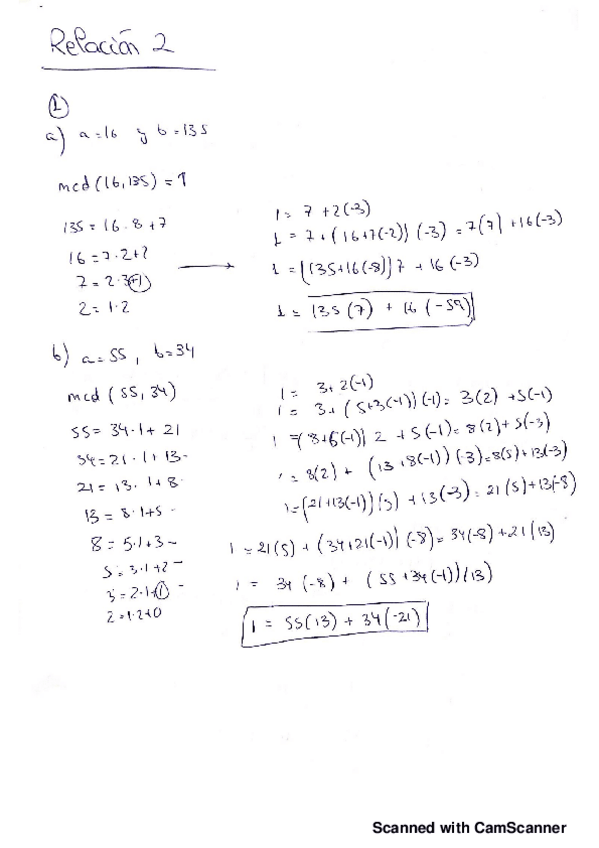 Relación 2
①
a) a=16 y b=135
mcd(16,135)=1
135=16·8+7
16=7·2+2
7=2·3+1
2=1·2
1= 7+2(-3)
1= 7+(16+7(-2))(-3)=7(7)+16(-3)
1=((135+16(-8))7 + 16(-3)
1= 135(7) + 16(-59)
b) a=55, b=34
mcd(55,34)
55=34·1+21
34=21·1+13-
21=13·1+8-
13=8·1+5-
8=5·1+3-
5=3·1+2-
3=2·1+1-
2=1·2+0
1= 3+2(-1)
1= 3+(5+3(-1))(-1)= 3(2)+5(-1)
1=(8+5(-1))2+5(-1)=8(2)+5(-3)
1=8(2)+(13+8(-1))(-3)=8(5)+13(-3)
1=(21+13(-1))(5)+13(-3)=21(5)+13(-8)
1=21(5)+(34+21(-1))(-8)=34(-8)+21(13)
1= 34(-8)+(55+34(-1))(13)
1= 55(13)+34(-21)
Scanned with CamScanner